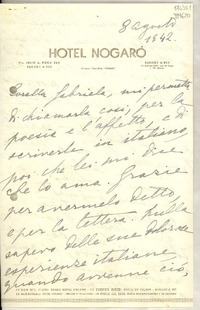 8 agosto
1942.
HOTEL NOGARÓ
Sorella Gabriela, mi permetta
di chiamarla così, per la
poesia e l'affetto, e di
scriverle in italiano,
poi che lei mi dice
che lo ama. Grazie
per avermelo detto,
e per la lettera. Nulla
sapevo delle sue dolorose
esperienze italiane.
Quando avvenne ciò,